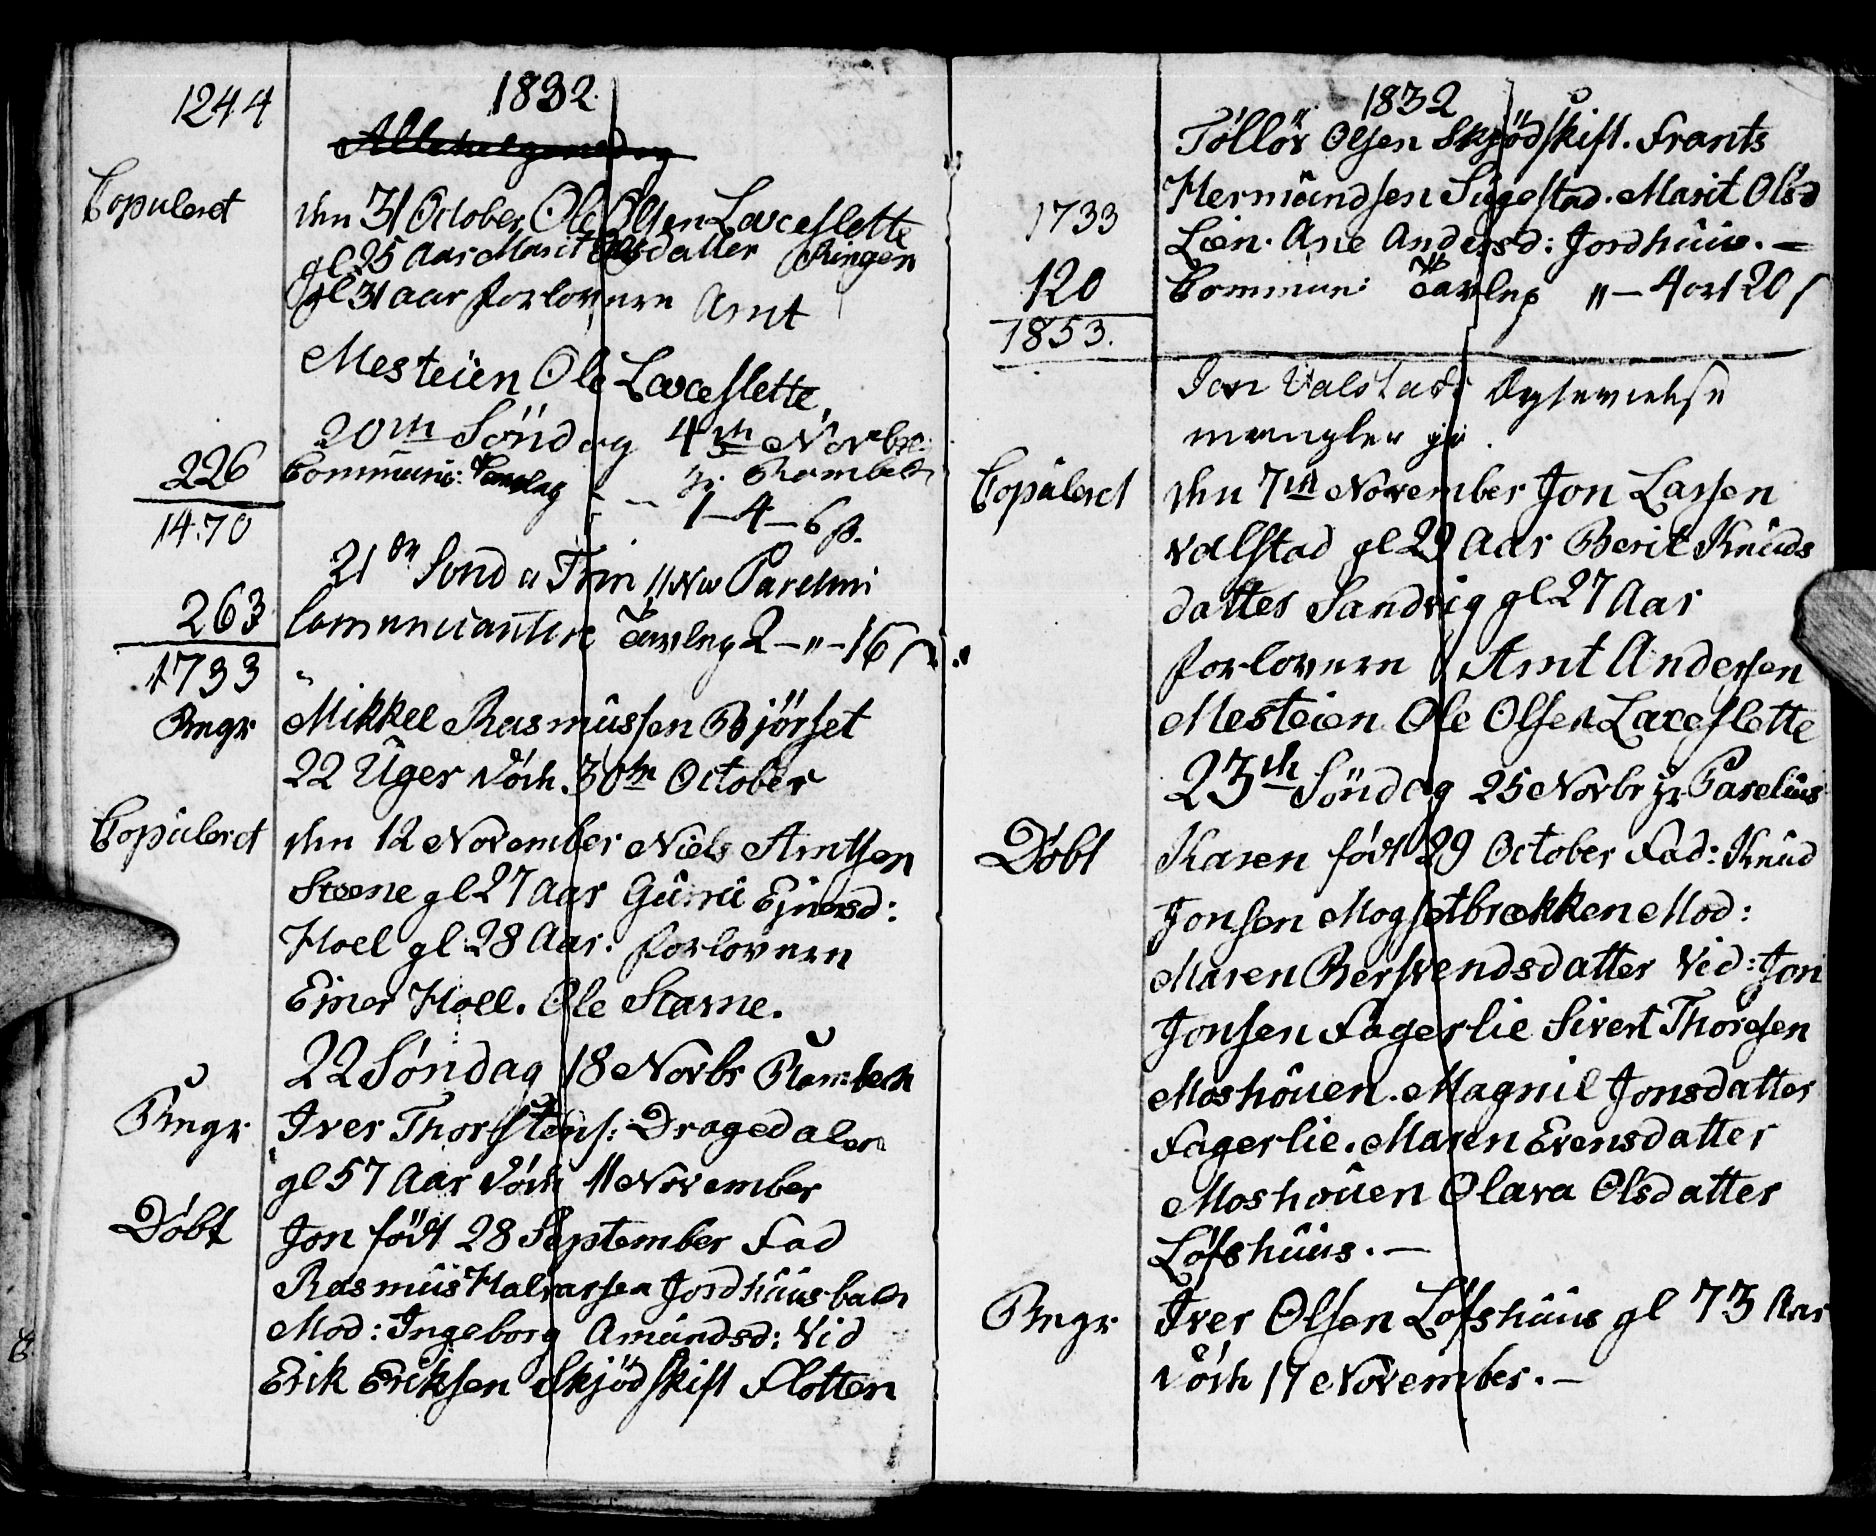 1832
1244
Allehelgensdag
Copuleret
den 31 October Ole Olsen Laxeslette
gl 25 Aar Marit Olsdatter Ringen
gl 31 aar forlovere Amt
Mesteien Ole Laxeslette,
20de Sönd og 4de Novbr:
226 Communi: Tavleg hr. Rambek
1470 1-4-6 β.
21de Sond a Trin 11 Nov Parelius
263 Communicantere Tavleg 2-"-16
1733
Begr Mikkel Rasmussen Bjørset
22 Uger död. 30te October
Copuleret den 12 November Niels Amtsen
Steene gl 27 Aar Guru Ejnersd:
Hoel gl 28 Aar. forlovere
Ejner Hoel. Ole Stavne.
22 Søndag 18 Novbr Rambech
Begr Iver Thorstens: Dragedalen
gl 57 Aar död 11 November
Döbt Jon födt 28 September Fad
Rasmus Halvorsen Jordhuusbak
Mod: Ingeborg Amundsd: Vid
Erik Eriksen Skjödskift Flotten
1832
Töllöv Olsen Skjödskift. Frants
Hermundsen Sugestad. Marit Olsd
1733 Lien. Ane Andersd: Jordhuus.-
120 Communi: Tavleg "-4 ort 20
1853.
Jon Valstads
mangler
Copuleret den 7de November Jon Larsen
Valstad gl 29 Aar Berit Knuds
datter Sandvig gl 27 Aar
forlovere Amt Andersen
Mesteien Ole Olsen Laxeslette
23de Söndag 25 Novbr hr Parelius
Döbt Karen födt 29 October Fad: Knud
Jonsen Mogsetbrækken Mod:
Maren Bersvendsdatter Vid: Jon
Jonsen Fagerlie Sivert Thoresen
Moshouen. Magnil Jonsdatter
Fagerlie. Maren Evensdatter
Moshouen Olava Olsdatter
Löfshuus.-
Begr Iver Olsen Löfshuus gl 73 Aar
död 17 November.-